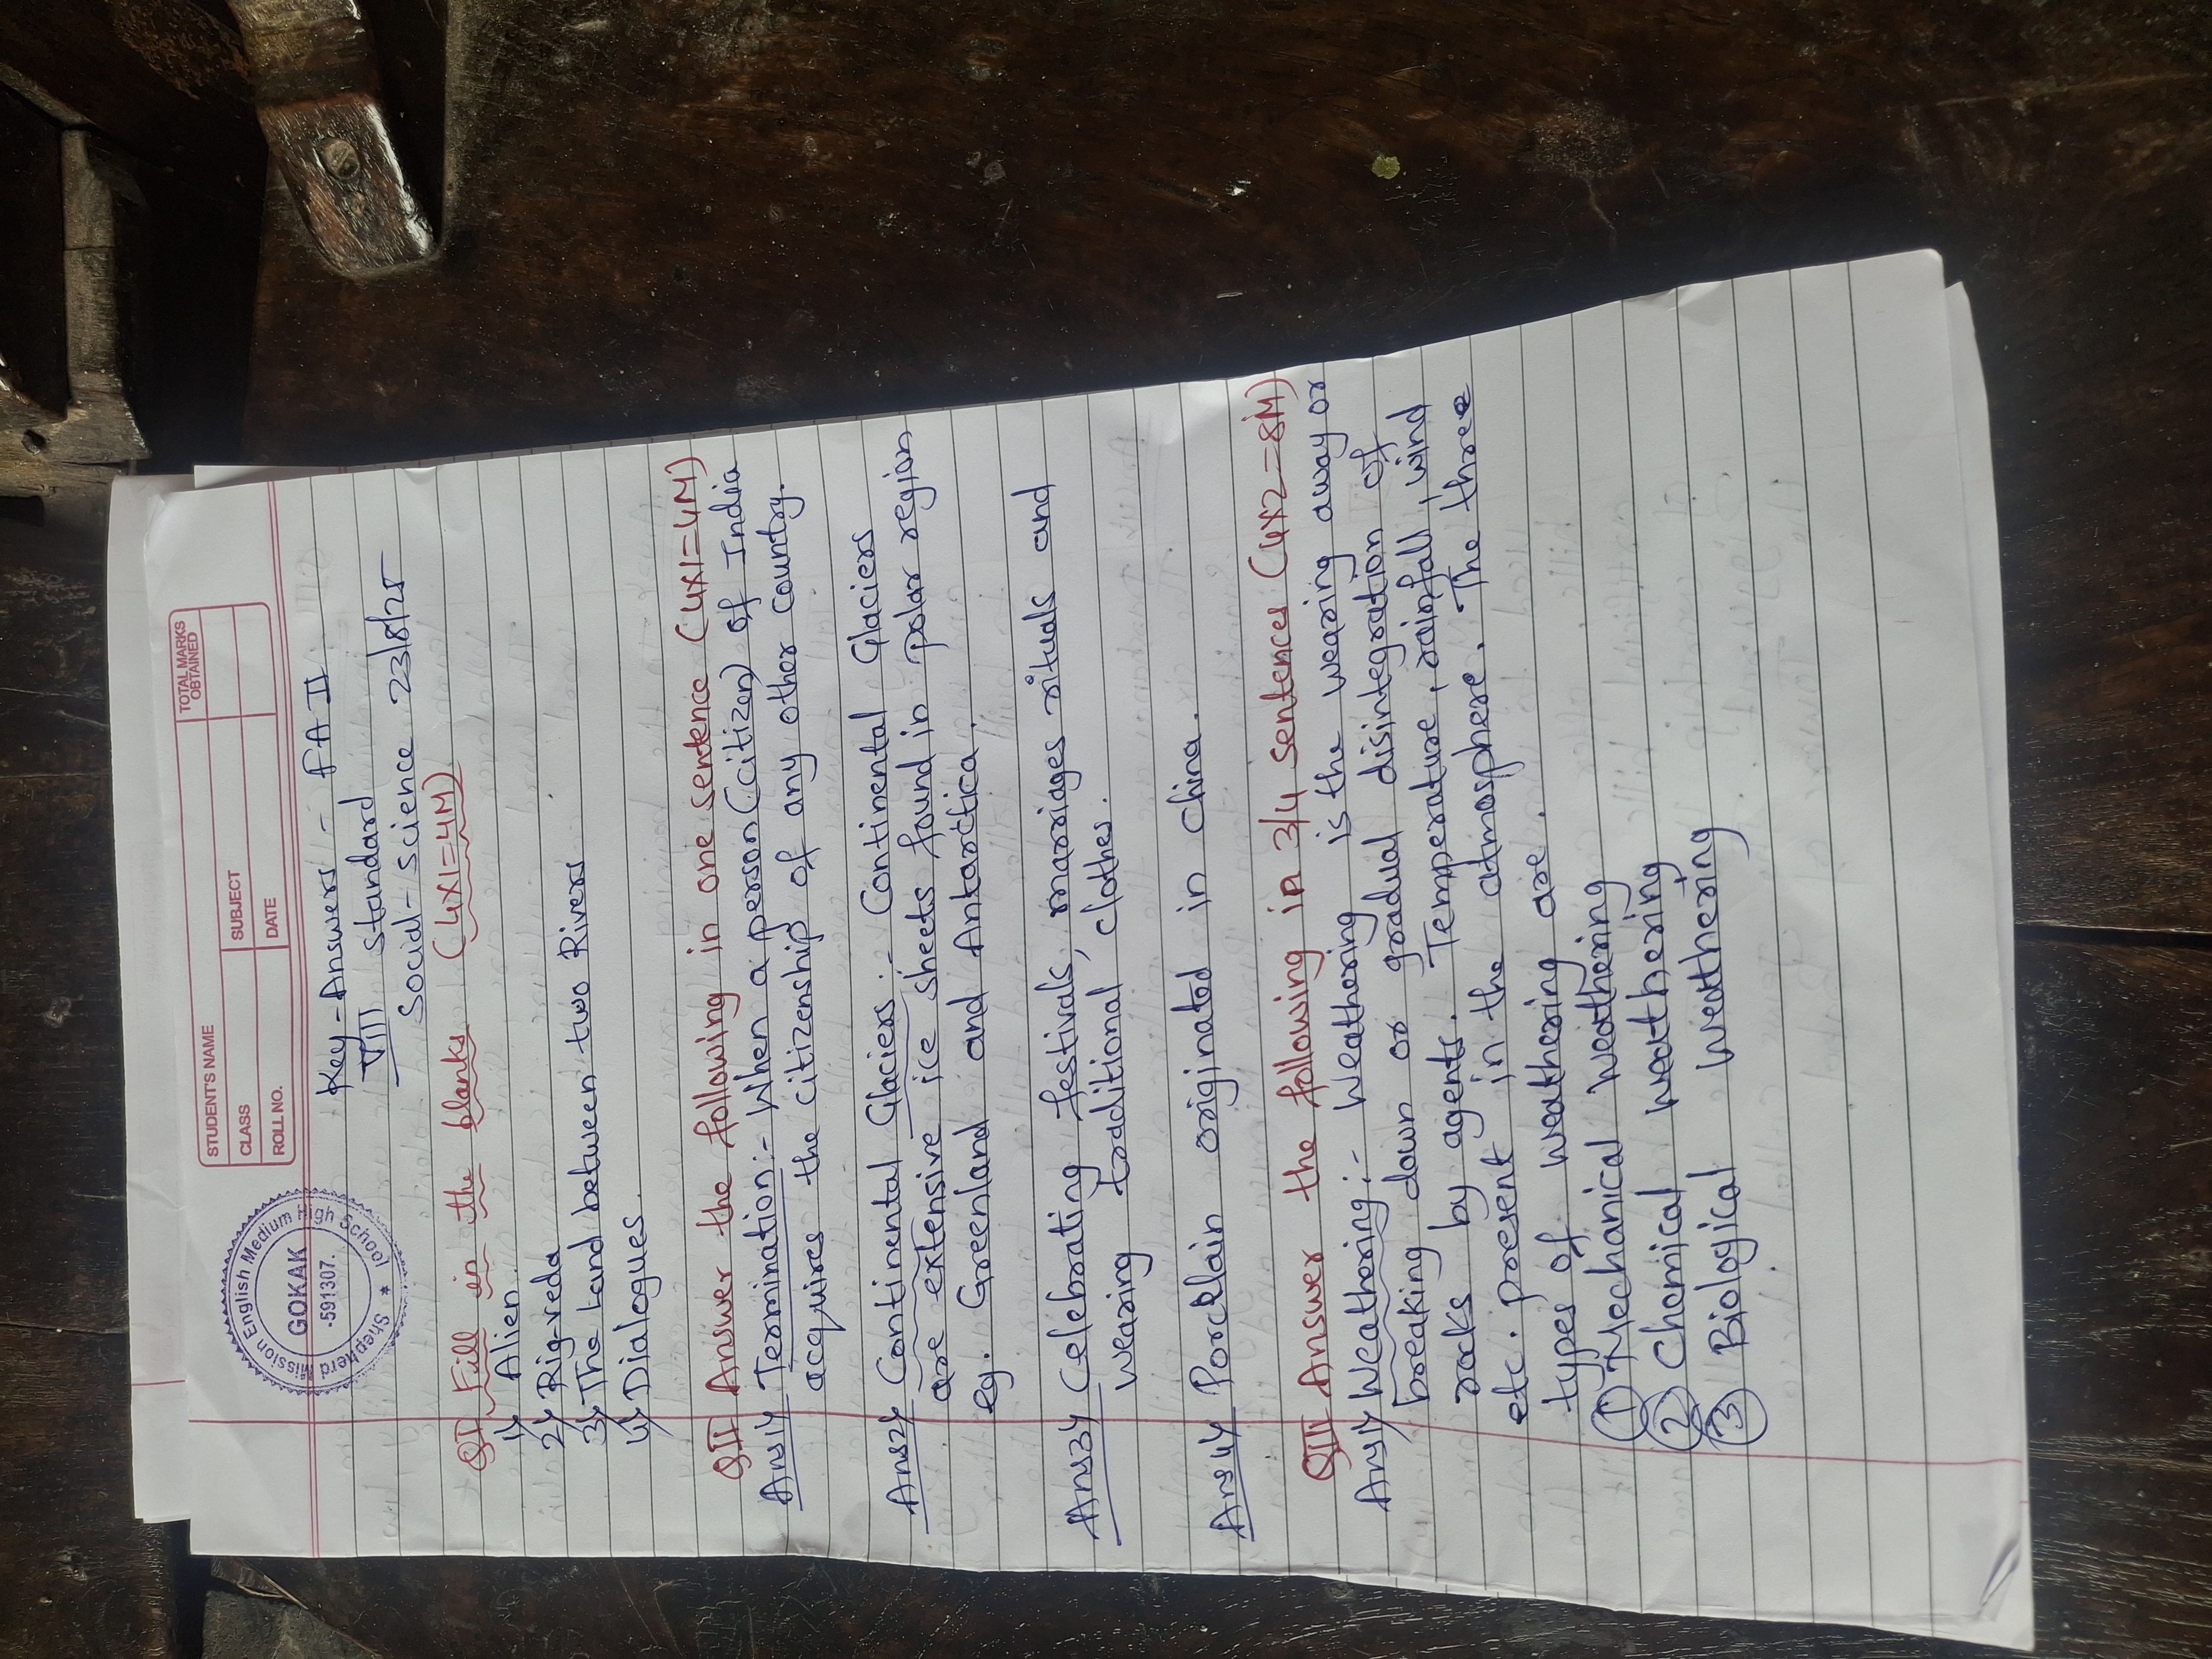 STUDENT'S NAME
TOTAL MARKS OBTAINED
CLASS
SUBJECT
ROLL NO.
DATE
Shepherd Mission English Medium High School
GOKAK
-591307.
*
Key-Answers - FA II
VIII standard
Social-science 23/8/25
QI Fill in the blanks (4x1=4M)
1) Alien
2) Rig-veda
3) The Land between two Rivers
4) Dialogues.
QII Answer the following in one sentence (4x1=4M)
Ans1) Termination:- When a person (citizen) of India
acquires the citizenship of any other country.
Ans2) Continental Glaciers:- Continental Glaciers
are extensive ice sheets found in polar region
eg. Greenland and Antarctica.
Ans3) Celebrating festivals, marriages rituals and
wearing traditional clothes.
Ans4) Porcelain originated in China.
QIII Answer the following in 3/4 sentences (4x2=8M)
Ans1) Weathering:- Weathering is the wearing away or
breaking down or gradual disintegration of
rocks by agents. Temperature, rainfall, wind
etc. present in the atmosphere. The three
types of weathering are.
① Mechanical weathering
② Chemical weathering
③ Biological weathering